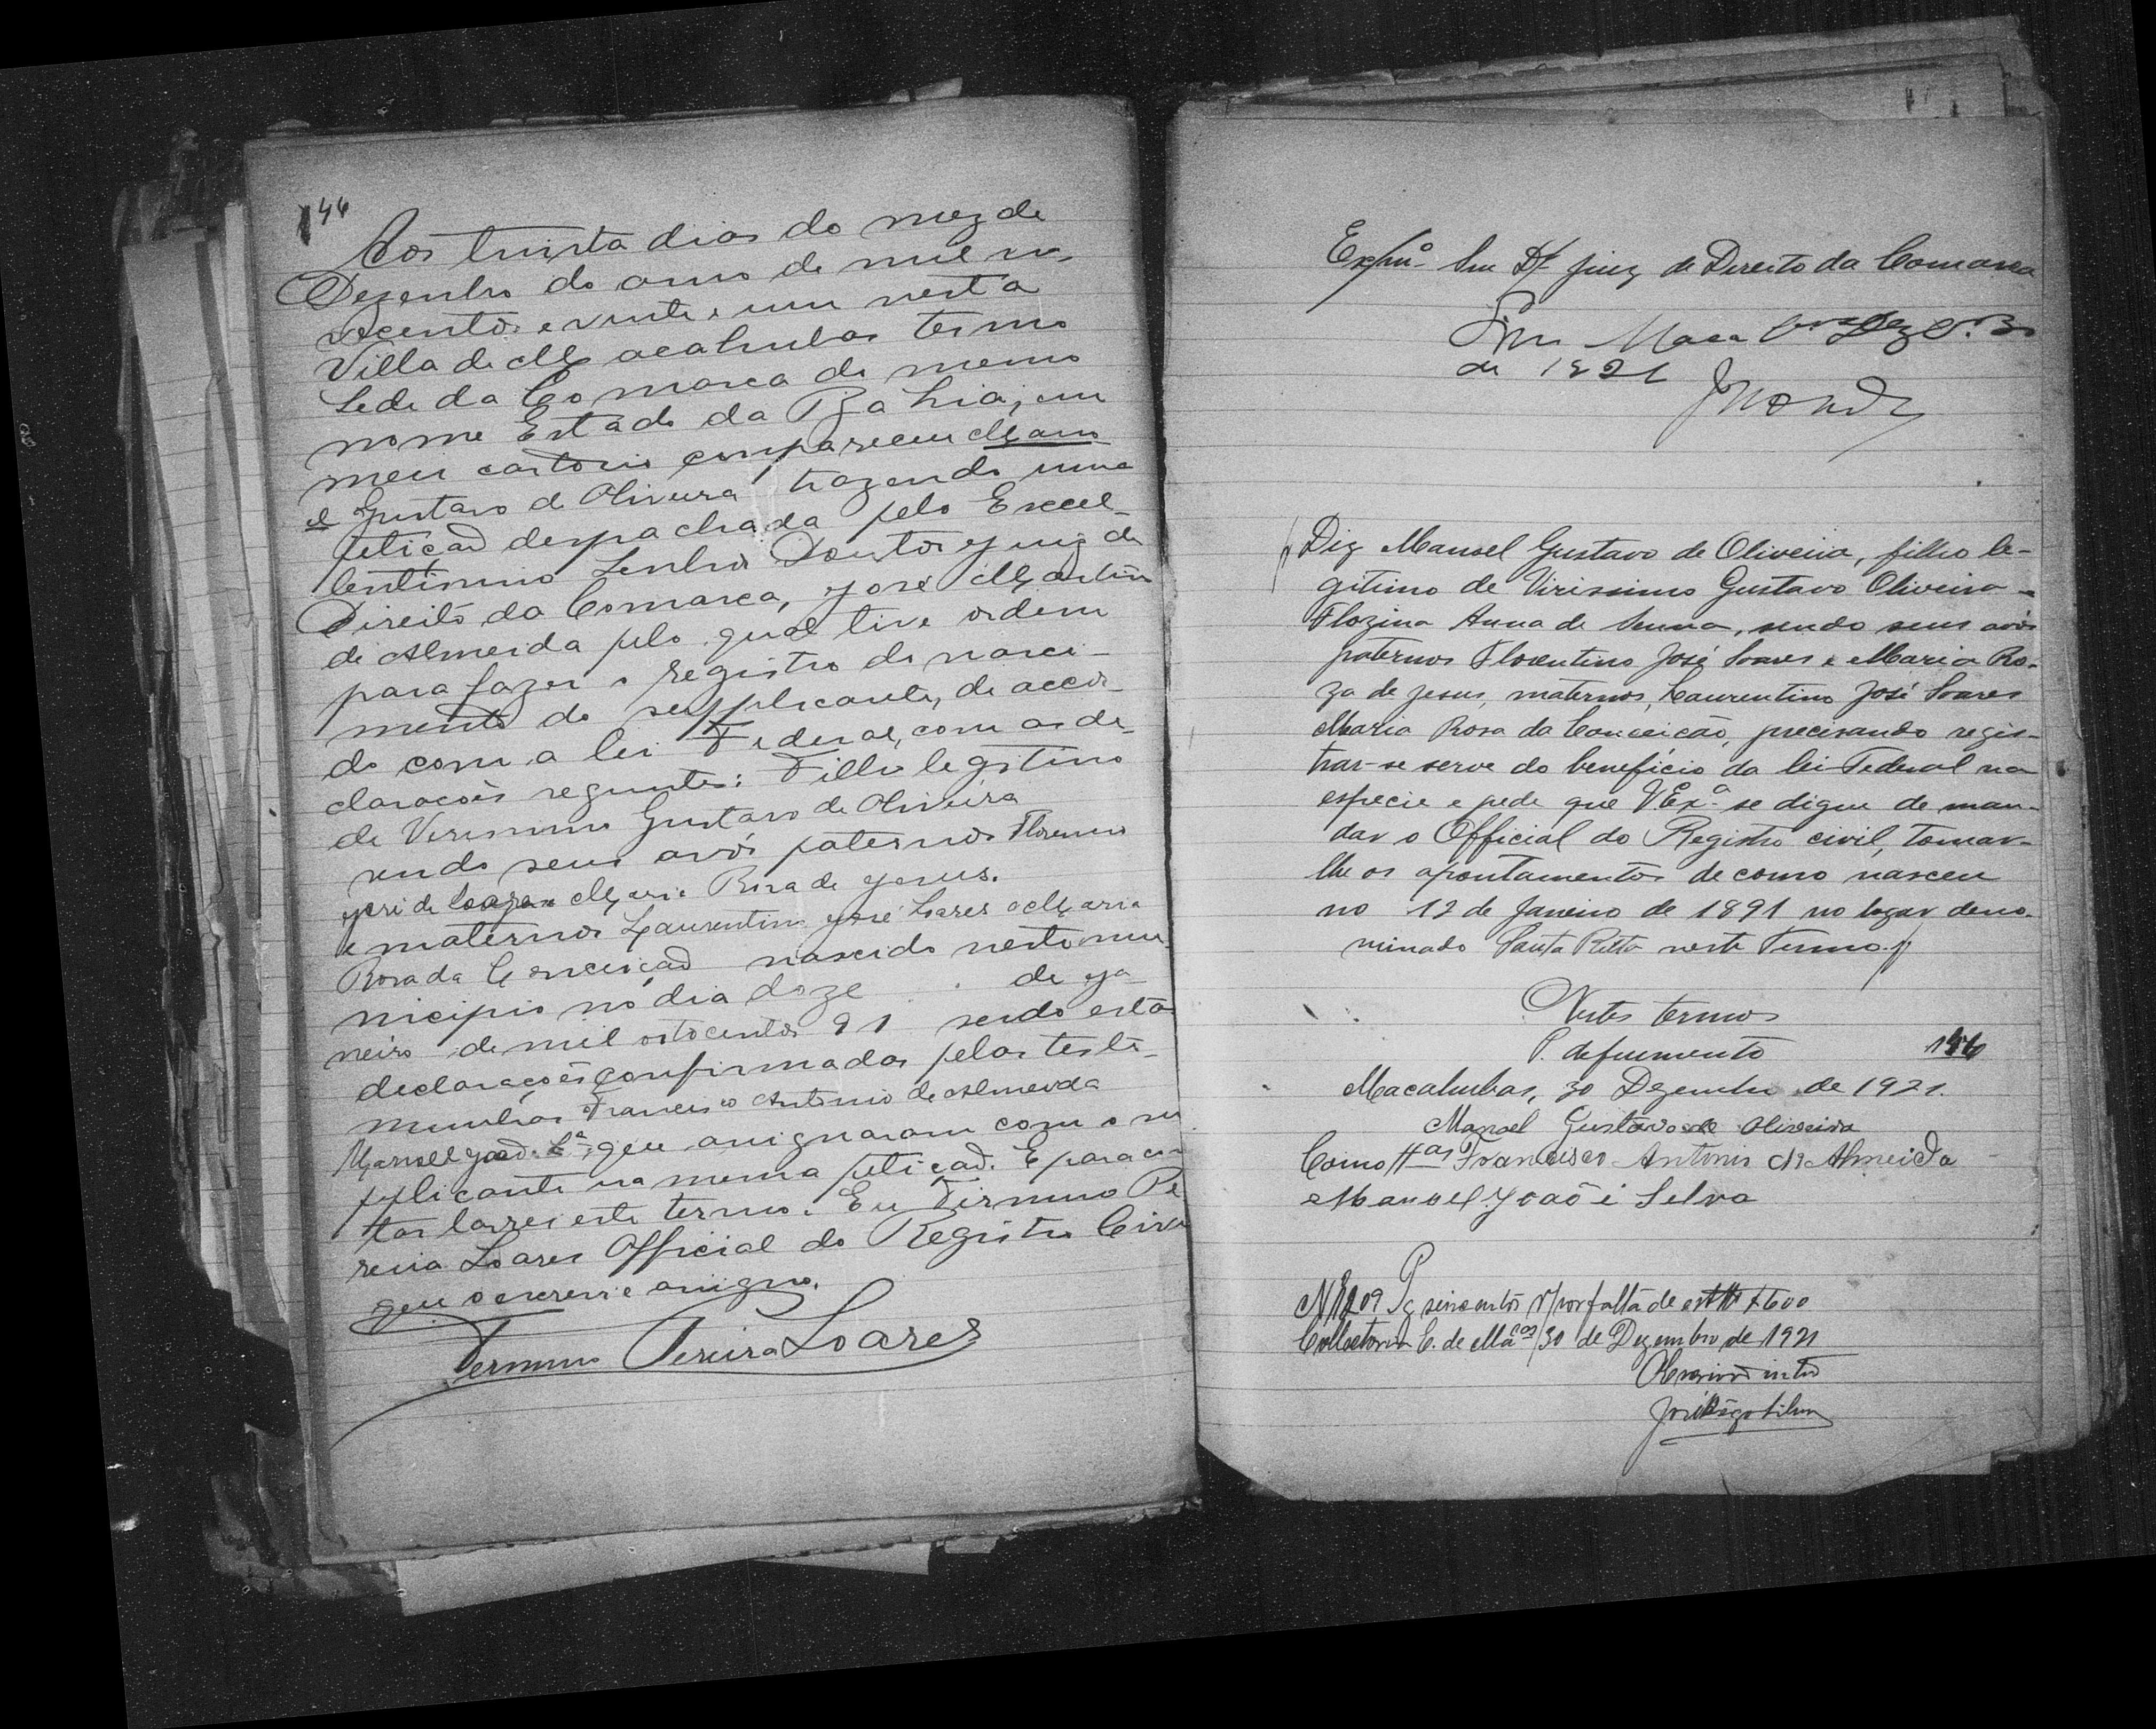 146
Aos trinta dias do mez de
Dezembro do anno de mil no-
vecentos e vinte e um nesta
Villa de Macahubas termo
Sede da Comarca do mesmo
nome Estado da Bahia, em
meu cartorio compareceu Mano
el Gustavo de Oliveira trazendo uma
petição despachada pelo Excel-
lentissimo Senhor Doutor Juiz de
Direito da Comarca, José Martins
de Almeida pelo qual tive ordem
para fazer o registro do nasci-
mento do supplicante, de accor-
do com a lei Federal, com as de-
clarações seguintes: Filho legitimo
de Verissimo Gustavo de Oliveira
sendo seus avós paternos
José de Maria Roza de Jesus.
e maternos Laurentino José Soares e Maria
Rosa da Conceição nascido neste mu
nicipio no dia doze de Ja
neiro de mil oitocentos 91 sendo estas
declarações confirmadas pelas teste-
munhas Francisco Antonio de Almeida
Manoel João que assignaram com o su
pplicante na mesma petição. E para cons
tar lavrei este termo. Eu Firmino Pe
reira Soares Official do Registro Civil
que o escrevi e assigno.
Firmino Pereira Soares
Exmo. Snr. Dr. Juiz de Direito da Comarca
Sim Maca Dez 30
de 1921
Diz Manoel Gustavo de Oliveira, filho le-
gitimo de Virissimo Gustavo Oliveira e
Flozina Anna de Senna, sendo seus avós
paternos Florentino José Soares e Maria Ro-
za de Jesus, maternos, Laurentino José Soares
Maria Rosa da Conceicão, precisando regis-
trar-se serve do beneficio da lei Federal na
especie e pede que V Exa. se digne de man-
dar o Official do Registro civil, tomar-
lhe os apontamentos de como nasceu
no 12 de Janeiro de 1891 no logar deno-
minado Santa Ritta neste Termo.
Nestes termos
P. deferimento
146
Macahubas, 30 Dezembro de 1921.
Manoel Gustavo de Oliveira
Como ttas Francisco Antonio de Almeida
e Manoel João e Selva
N 1209 Pg seiscentos rs por falta de estta $600
Collectoria E. de Macas 30 de Dezembro de 1921